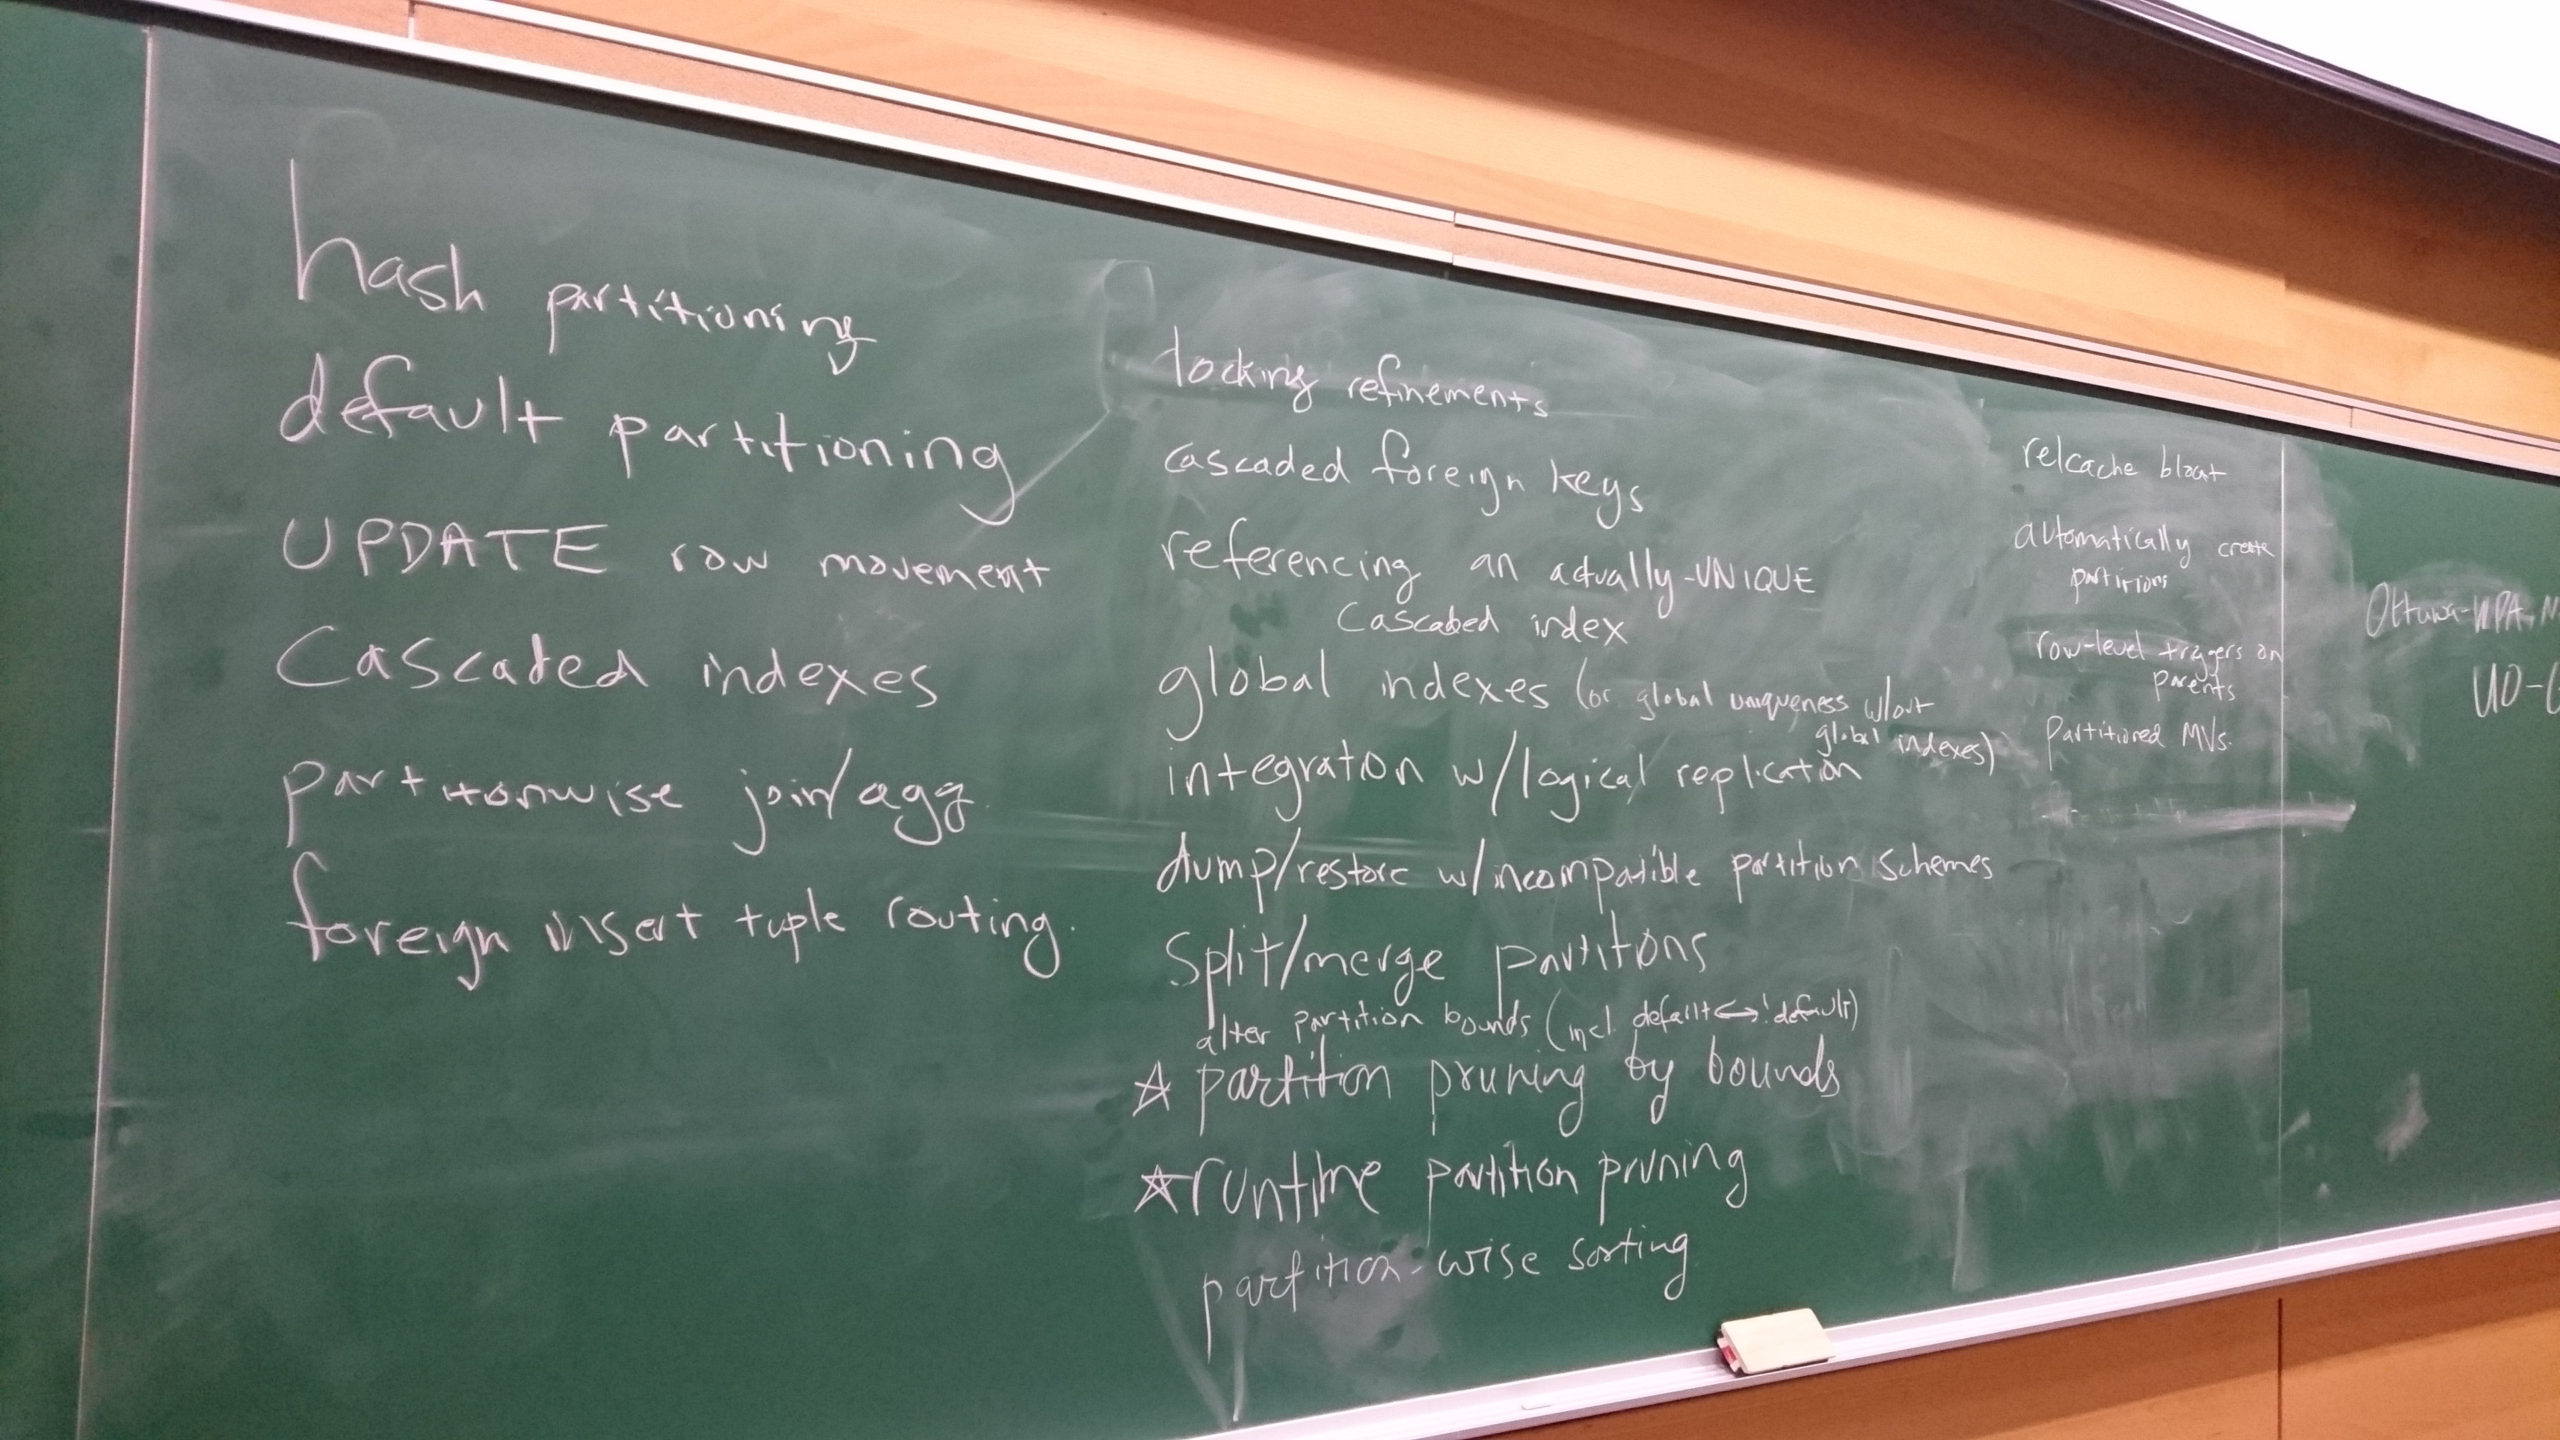 hash partitioning
default partitioning
UPDATE row movement
Cascaded indexes
partitionwise join/agg.
foreign insert tuple routing.
locking refinements
cascaded foreign keys
referencing an actually-UNIQUE
Cascaded index
global indexes (or global uniqueness w/out
global indexes)
integration w/logical replication
dump/restore w/incompatible partition schemes
Split/merge partitions
alter partition bounds (incl. default<->!default)
☆ partition pruning by bounds
☆ runtime partition pruning
partition-wise sorting
relcache bloat
automatically create
partitions
row-level triggers on
parents
Partitioned MVs.
Ottawa-WPA-
UO-